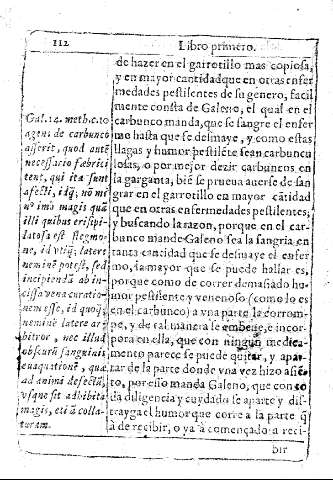 112
Libro primero.
de hazer en el garrotillo mas copiosa,
y en mayor cantidad que en otras enfer
medades pestilentes de su genero, facil
mente consta de Galeno, el qual en el
carbunco manda, que se sangre el enfer
mo hasta que se desmaye, y como estas
llagas y humor pestilēte sean carbuncu
losas, o por mejor dezir carbuncos en
la garganta, biē se prueua auerse de san
grar en el garrotillo en mayor cātidad
que en otras enfermedades pestilentes;
y buscando la razon, porque en el car-
bunco mande Galeno sea la sangria en
tanta cantidad que se desmaye el enfer
mo, la mayor que se puede hallar es,
porque como de correr demasiado hu
mor pestilente y venenoso (como lo es
en el carbunco) a vna parte la corrom-
pe, y de tal manera se embeue, e incor
pora en ella, que con ningun medica
mento parece se puede quitar, y apar-
tar de la parte donde vna vez hizo asiē
to, por esso manda Galeno, que con to
da diligencia y cuydado se aparte y dis-
trayga el humor que corre a la parte q̄
à de recibir, o ya à començado a reci-
bir
Gal. 14. meth. c. 10
agens de carbunco
asserit, quod autē
necessario fæbrici
tent, qui ita sunt
afecti, idq; nō mi
nº imò magis quā
illi quibus erisipi-
latosa est flegmo-
ne, id vtiq; latere
neminē potest, sed
incipiendū ab in-
cissa vena curatio-
nem esse, id quoq;
neminē latere ar-
bitror, nec illud
obscurū sanguinis
euaquationē, quæ
ad animi defectū,
vsque sit adhibita
magis, etiā colla-
turam.